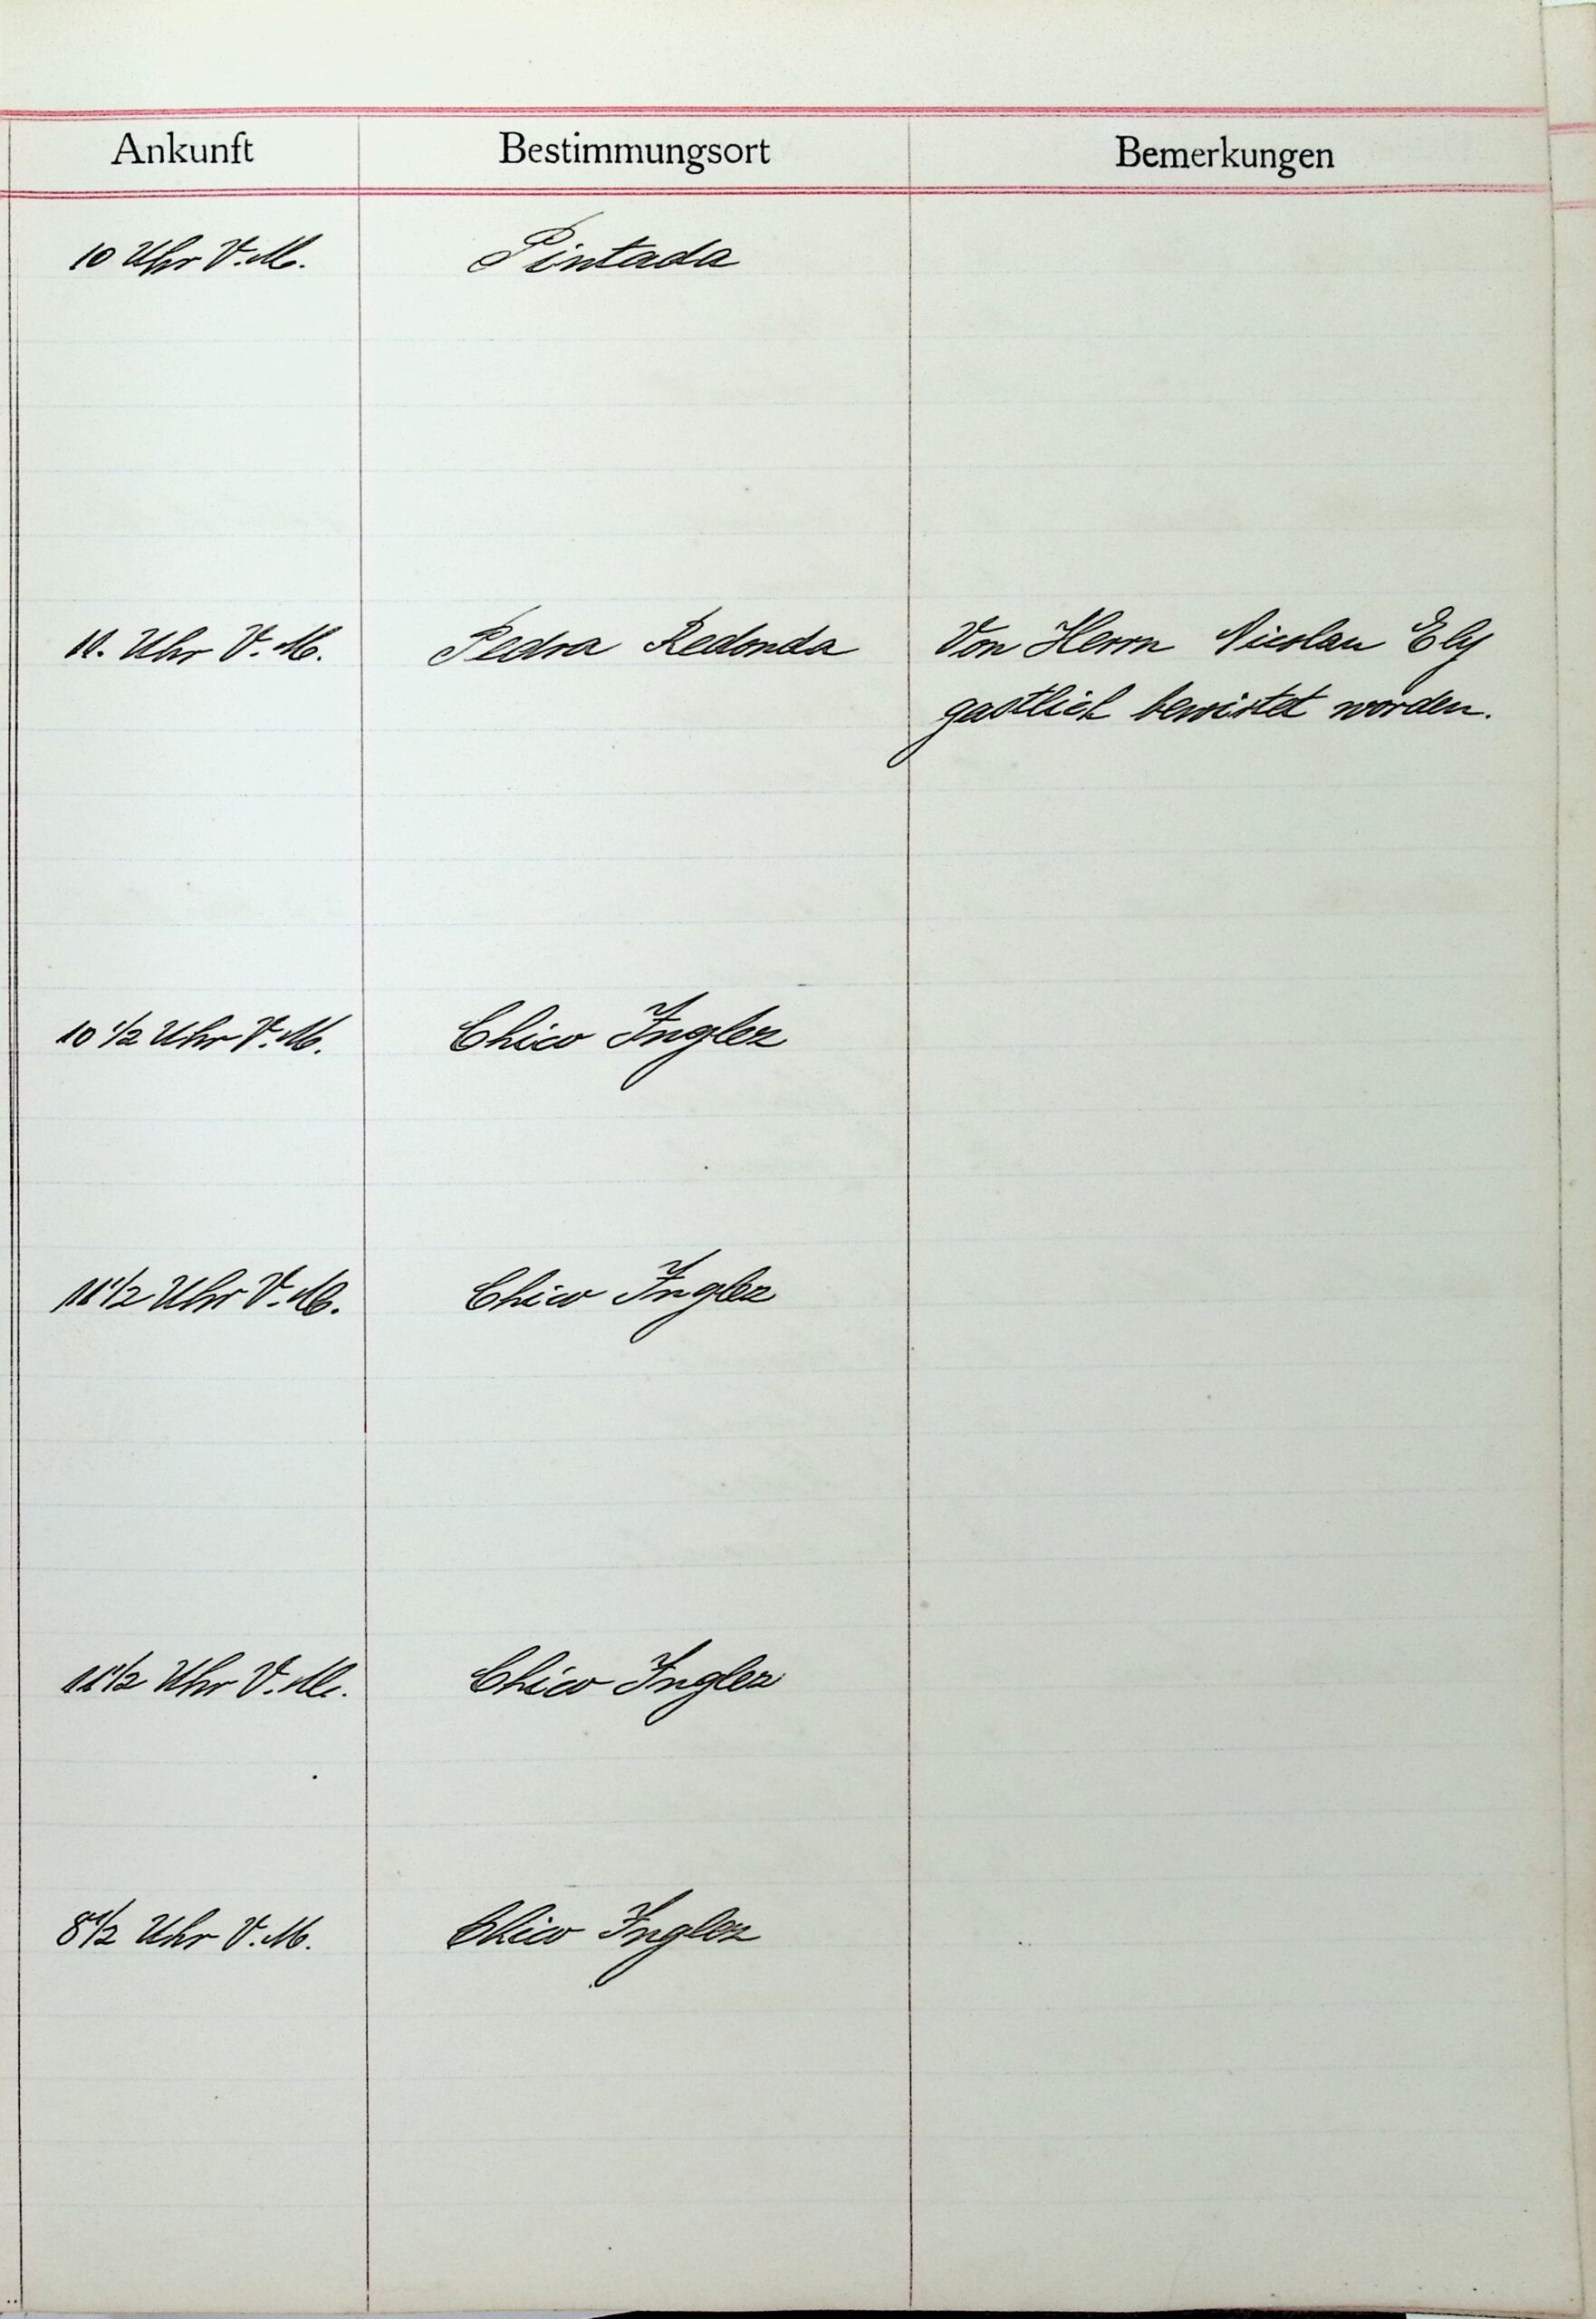 Ankunft Bestimmungsort Bemerkungen
10 Uhr V.M. Pintada
11. Uhr V.M. Pedra Redonda Von Herrn Nicolau Ely
gastlich bewirtet worden.
10 1/2 Uhr V.M. Chico Inglez
11 1/2 Uhr V.M. Chico Inglez
11 1/2 Uhr V.M. Chico Inglez
8 1/2 Uhr V.M. Chico Inglez